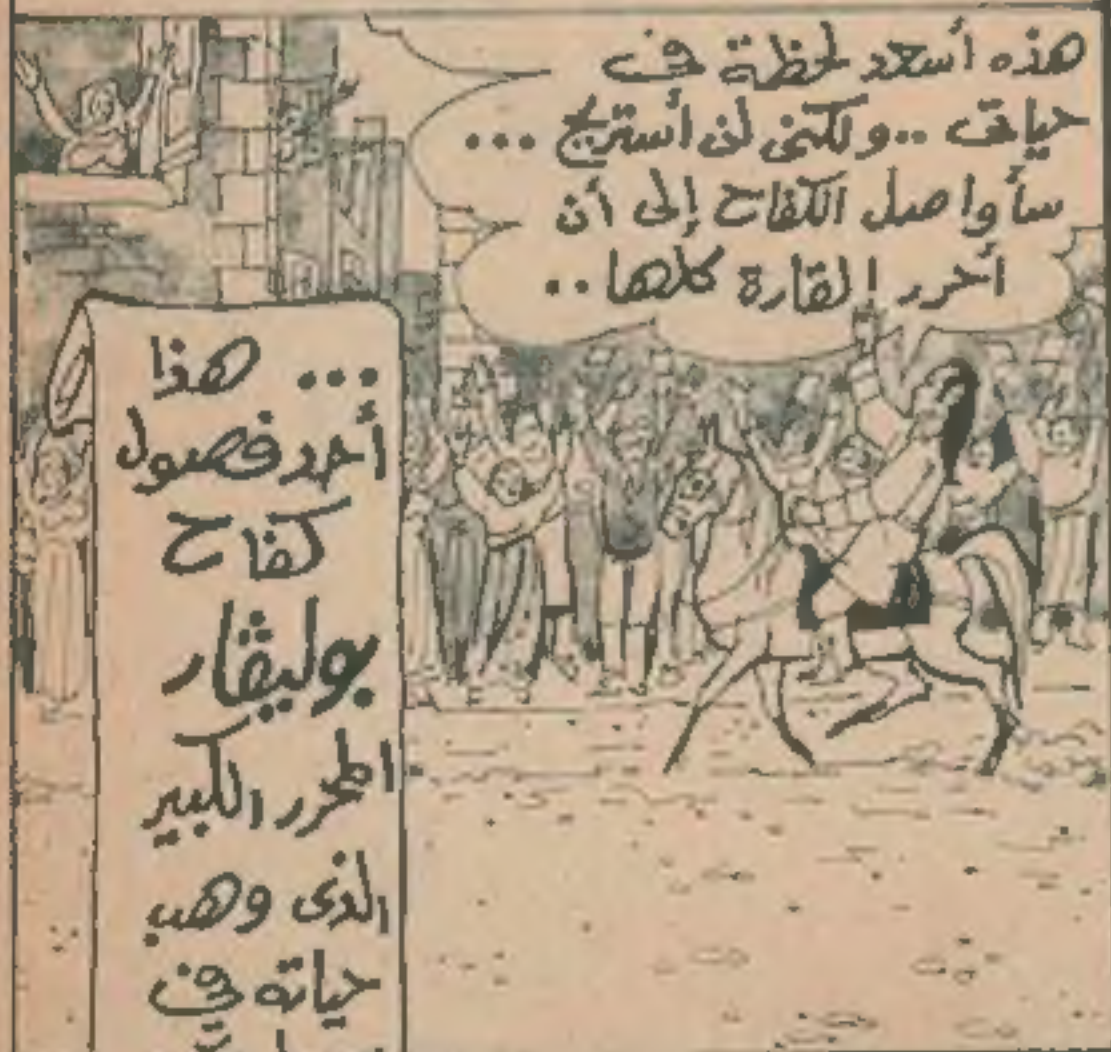 هذه أسعد لحظة فى
حياتى .. ولكنى لن أستريح ...
سأواصل الكفاح إلى أن
أحرر القارة كلها ..
... هذا
أحد فصول
كفاح
بوليڤار
المحرر الكبير
الذى وهب
حياته فى